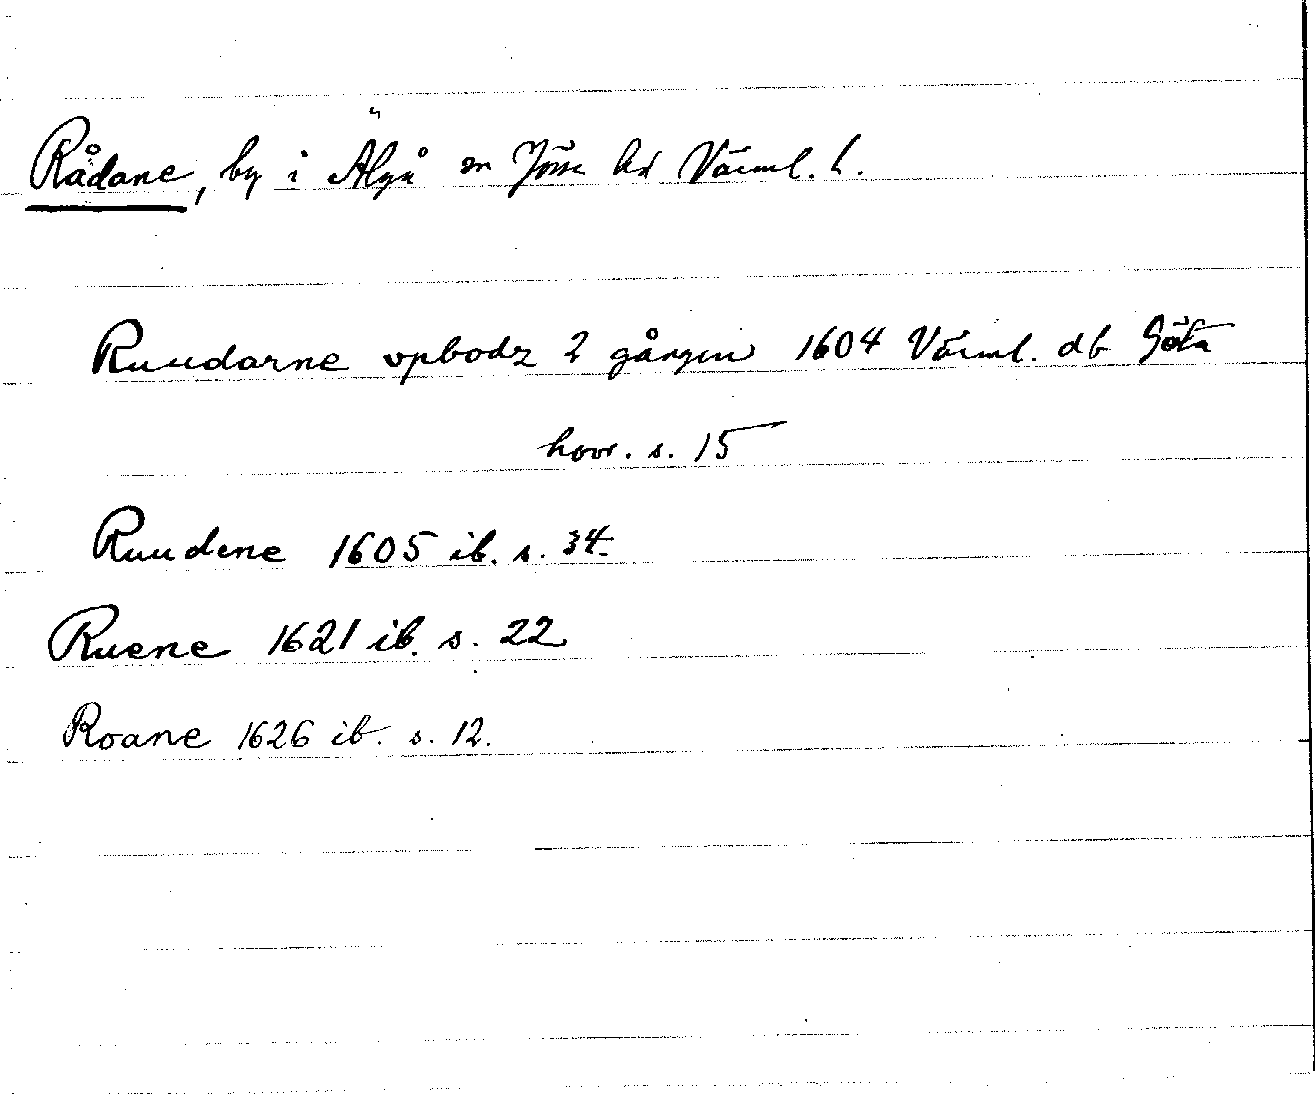 Rådane, by i Älgå sn Jösse hd Värml. l.
Ruudarne opbodz 2 gången 1604 Värml. db Göta
hovr. s. 15
Ruudene 1605 ib. s. 34.
Ruene 1621 ib. s. 22
Roane 1626 ib. s. 12.